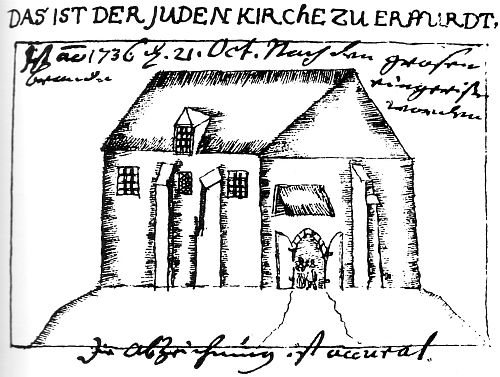 DAS IST DER JUDEN KIRCHE ZU ERFFURDT,
Ist ao 1736 d. 21. Oct. Nach den grosen
brande eingerißen
worden
Die Abzeichnung ist accurat.